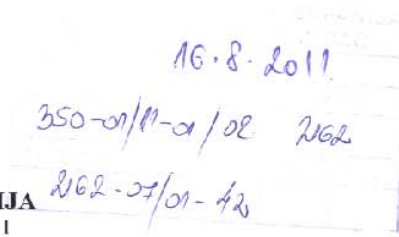 16.8.2011
350-01/11-01/02 2162
2162-07/01-
IJA
1